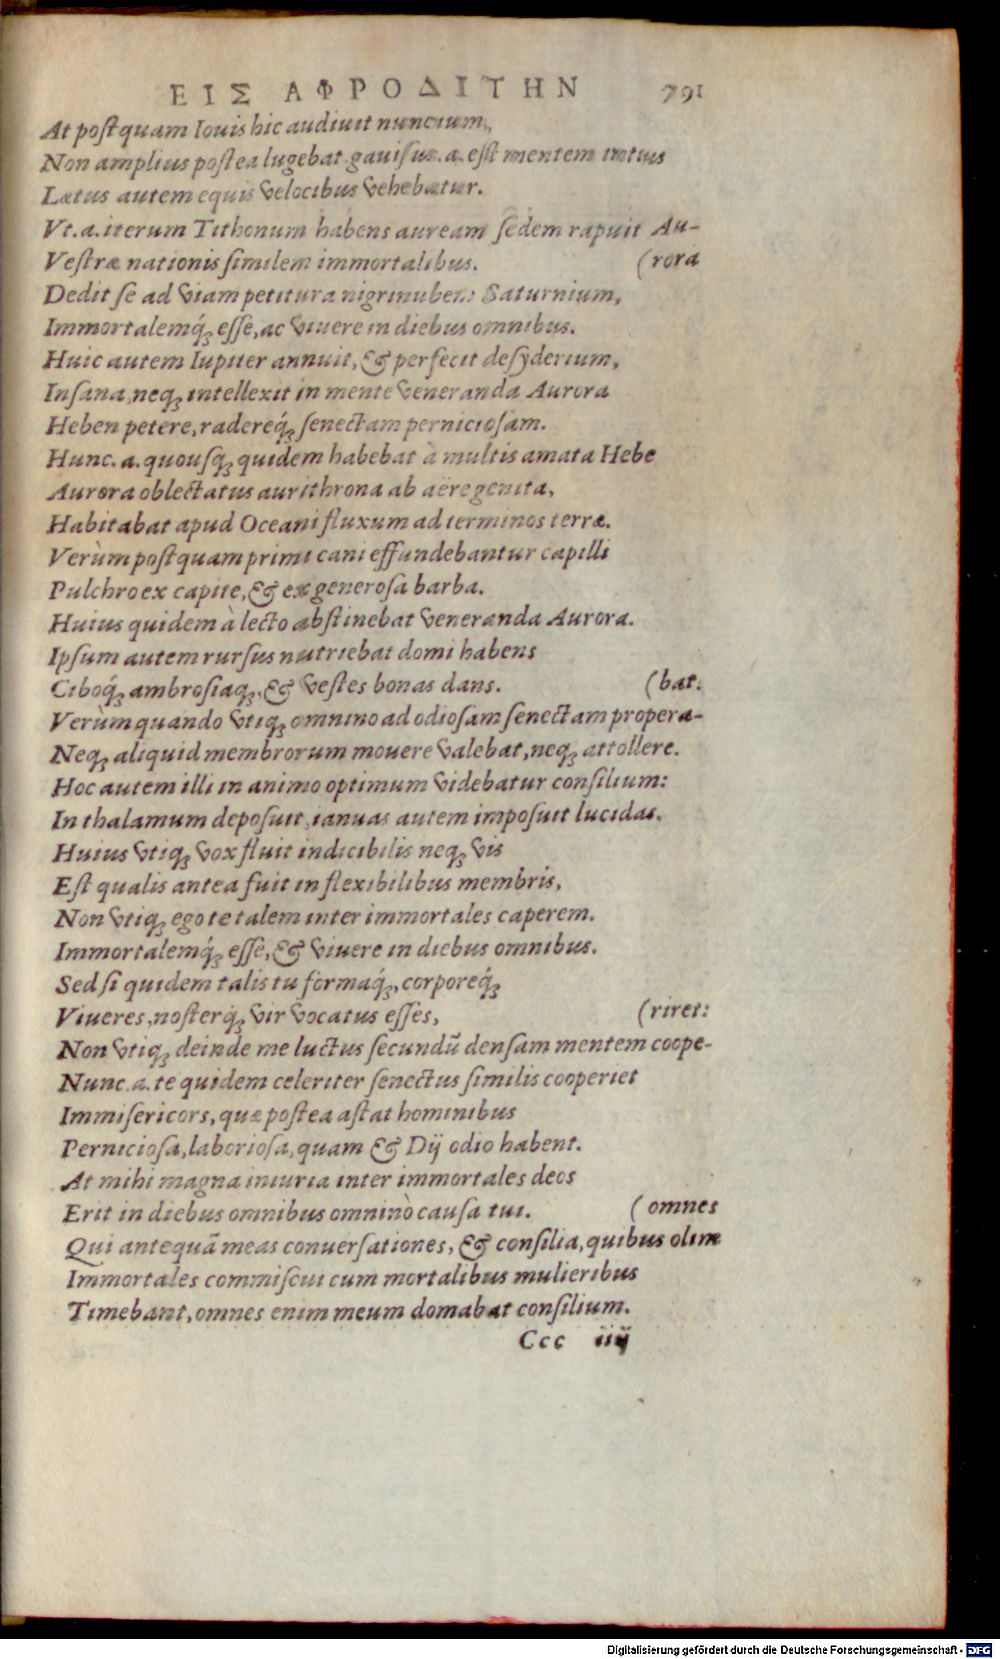 ΕΙΣ ΑΦΡΟΔΙΤΗΝ 791
At postquam Iouis hic audiuit nuncium,
Non amplius postea lugebat gauisus .a. est mentem intus
Lætus autem equis velocibus vehebatur.
Vt .a. iterum Tithonum habens auream sedem rapuit Au-
Vestræ nationis similem immortalibus. (rora
Dedit se ad viam petitura nigrinubem Saturnium,
Immortalemq́; esse, ac viuere in diebus omnibus.
Huic autem Iupiter annuit, & perfecit desyderium,
Insana, neq; intellexit in mente veneranda Aurora
Heben petere, radereq́; senectam perniciosam.
Hunc .a. quousq; quidem habebat à multis amata Hebe
Aurora oblectatus aurithrona ab aëre genita,
Habitabat apud Oceani fluxum ad terminos terræ.
Verùm postquam primi cani effundebantur capilli
Pulchro ex capite, & ex generosa barba.
Huius quidem à lecto abstinebat veneranda Aurora.
Ipsum autem rursus nutriebat domi habens
Ciboq́; ambrosiaq;, & vestes bonas dans. (bat.
Verùm quando vtiq; omnino ad odiosam senectam propera-
Neq; aliquid membrorum mouere valebat, neq; attollere.
Hoc autem illi in animo optimum videbatur consilium:
In thalamum deposuit, ianuas autem imposuit lucidas.
Huius vtiq; vox fluit indicibilis neq; vis
Est qualis antea fuit in flexibilibus membris,
Non vtiq; ego te talem inter immortales caperem.
Immortalemq́; esse, & viuere in diebus omnibus.
Sed si quidem talis tu formaq́;, corporeq́;
Viueres, nosterq́; vir vocatus esses, (riret:
Non vtiq; deinde me luctus secundũ densam mentem coope-
Nunc .a. te quidem celeriter senectus similis cooperiet
Immisericors, quæ postea astat hominibus
Perniciosa, laboriosa, quam & Dij odio habent.
At mihi magna iniuria inter immortales deos
Erit in diebus omnibus omninò causa tui. (omnes
Qui antequã meas conuersationes, & consilia, quibus olim
Immortales commiscui cum mortalibus mulieribus
Timebant, omnes enim meum domabat consilium.
Ccc iiij
Digitalisierung gefördert durch die Deutsche Forschungsgemeinschaft - DFG